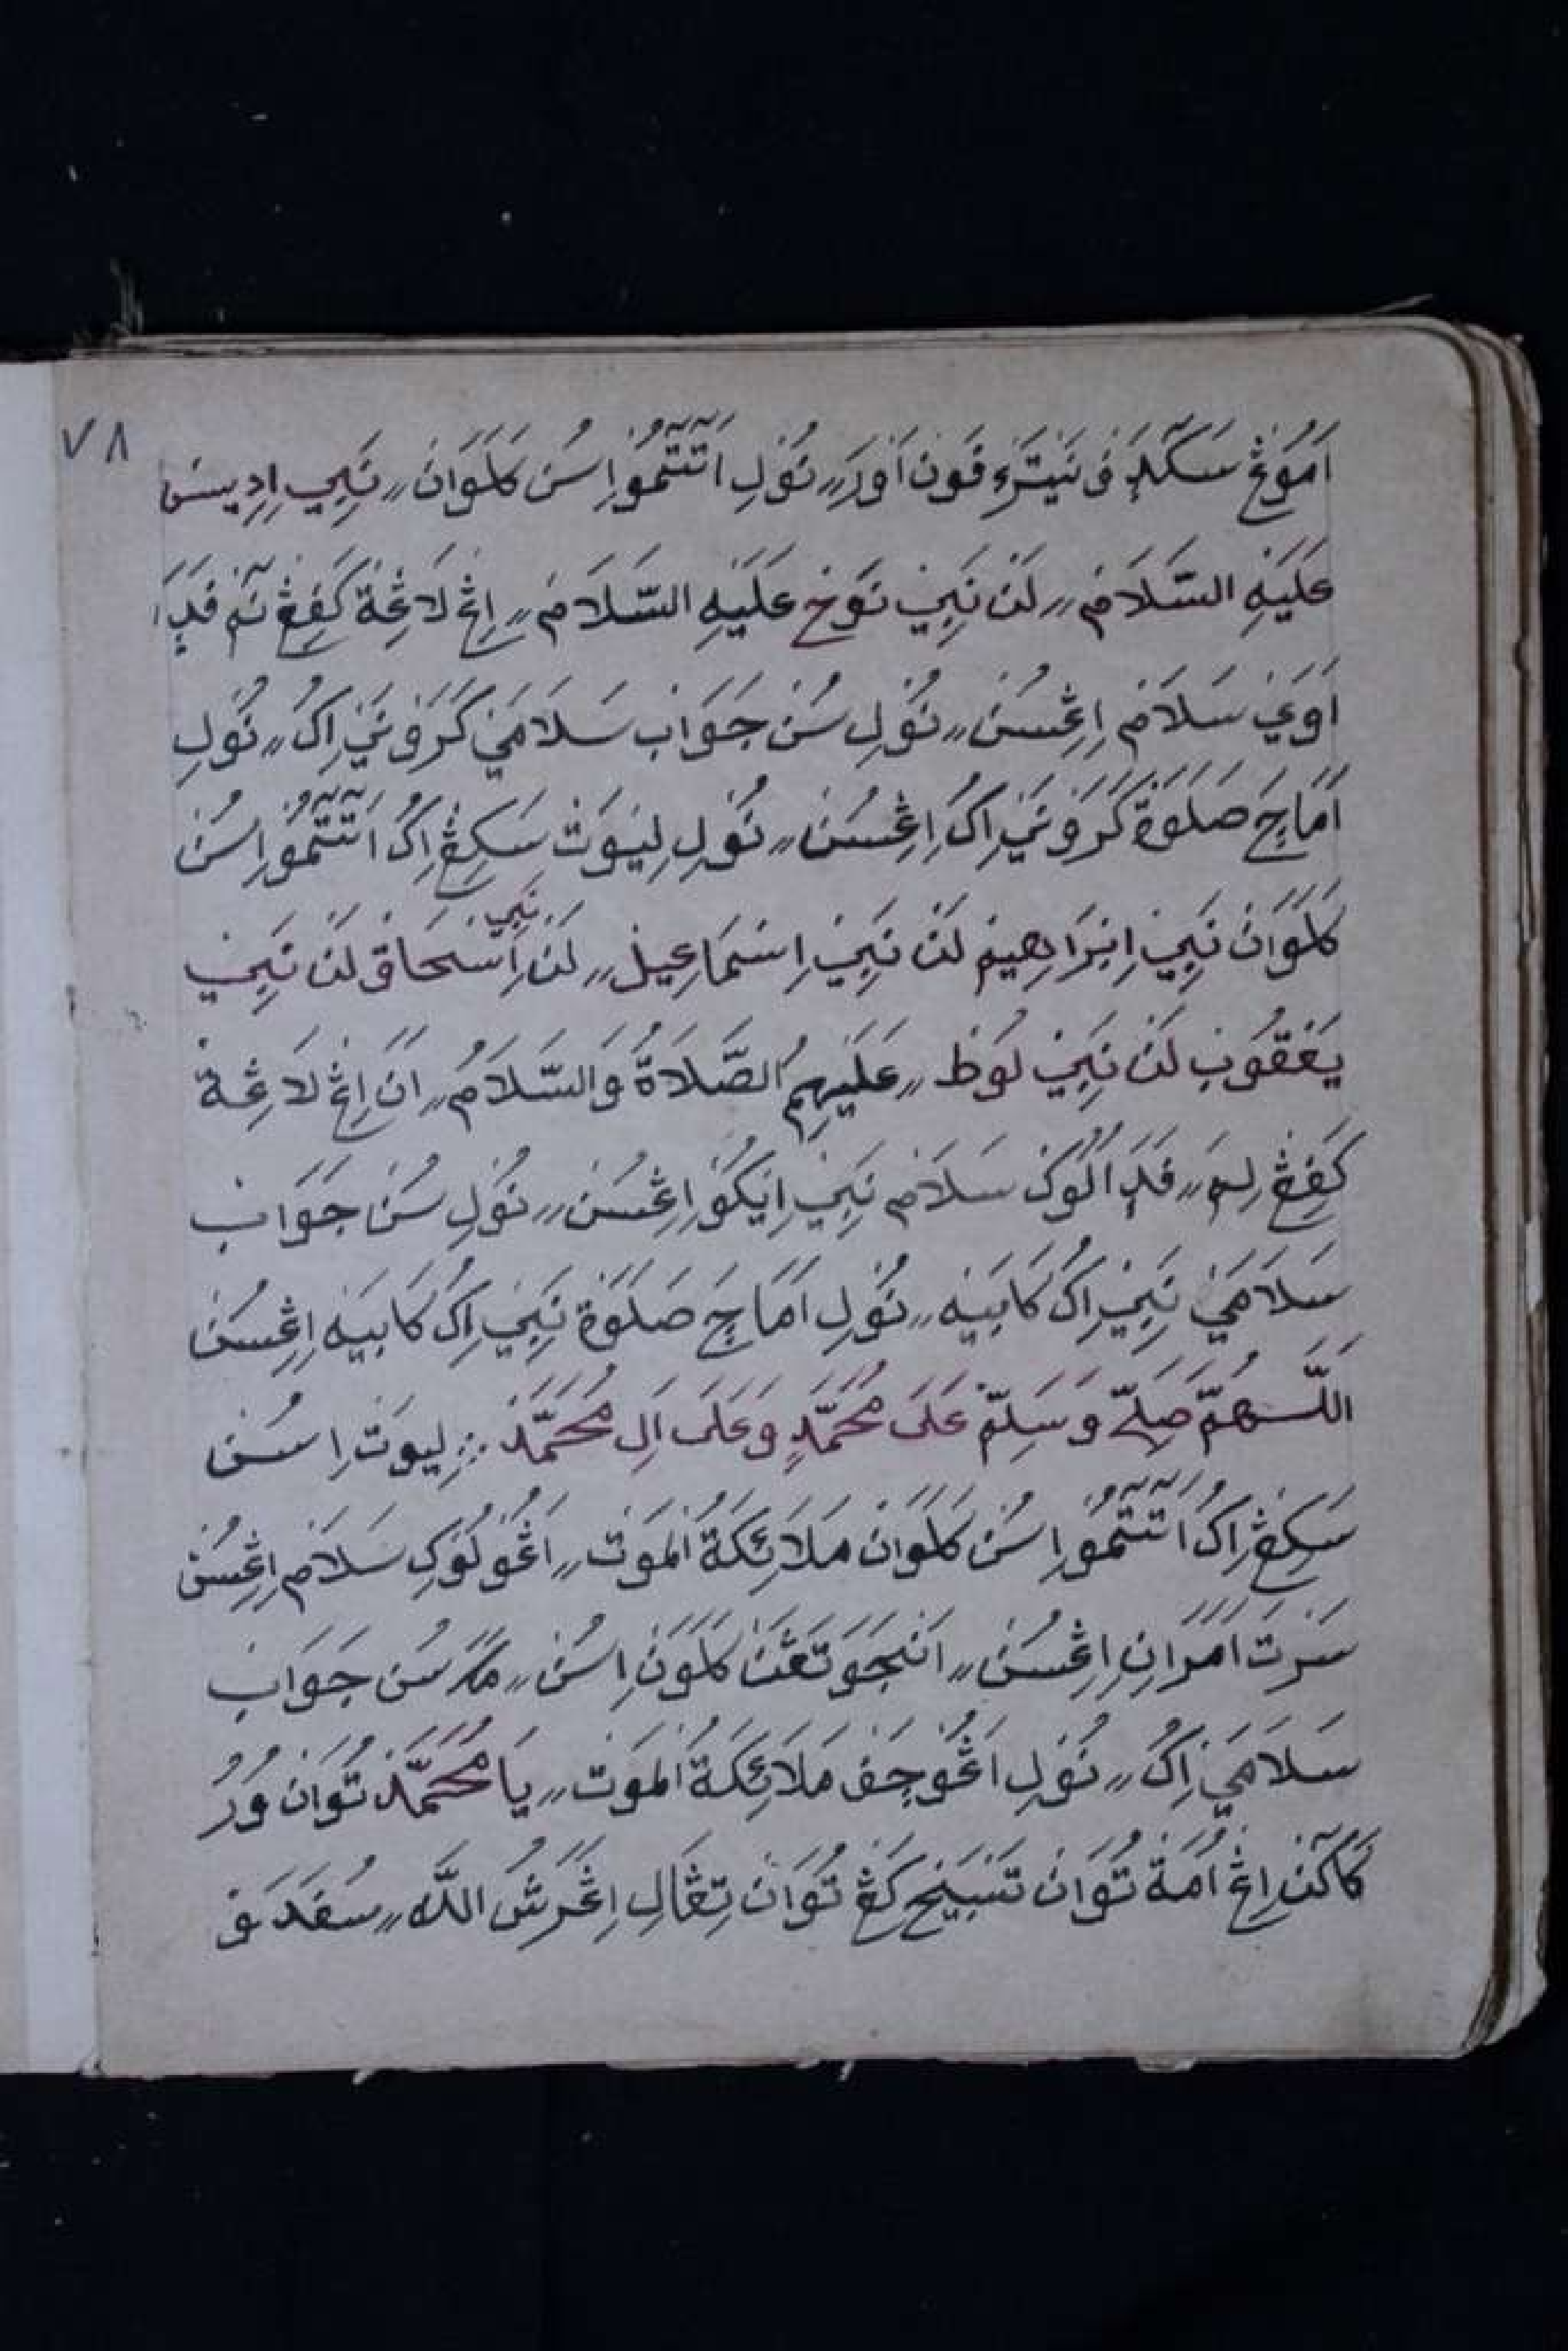 ٧٨
اَمُوْڠ سَكَلِ فَنَيْتَرَءِ فَون اَوْرَ ،، نُوْلِ اَتٓتٓمُوْ اِسُنْ كَلَوَانْ ،، نَبِي اِدِرِيسْ
عَلَيْهِ السَّلَامْ ،، لَنْ نَبِيْ نُوْحْ عَلَيْهِ السَّلَامْ ،، اِڠ لَاڠِة كَفِڠ نٓمْ فَدَ
اَوَيْ سَلَامْ اِڠِسُنْ ،، نُوْلِ سُنْ جَوَابْ سَلَامَيْ كَرَوْنَيْ اِكُ ،، نُوْلِ
اَمَاچَ صَلَوَةْ كَرَوْنَيْ اِكُ اِڠِسُنْ ،، نُوْلِ لِيْوَتْ سَكِڠ اِكُ اَتٓتٓمُوْ اِسُنْ
كَلَوَانْ نَبِيْ اِبْرَاهِيمْ لَنْ نَبِيْ اِسْمَاعِيلْ ،، لَنْ نَبِي اِسْحَاقْ لَنْ نَبِيْ
يَعْقُوْبْ لَنْ نَبِيْ لُوْطْ ،، عَلَيْهِمُ الصَّلَاةُ وَالسَّلَامُ ،، اَنْ اِڠ لَاڠِةْ
كَفِڠ لِمَ ،، فَدَ اُلُوْكْ سَلَامْ نَبِيْ اِيْكُوْ اِڠِسُنْ ،، نُوْلِ سُنْ جَوَابْ
سَلَامَيْ نَبِيْ اِكُ كَابَيْه ،، نُوْلِ اَمَاچَ صَلَوَةْ نَبِيْ اِكُ كَابَيْه اِڠِسُنْ
اَللّٰهُمَّ صَلِّ وَسَلِّمْ عَلَى مُحَمَّدٍ وَعَلَى اٰلِ مُحَمَّدْ ؞ لِيوَتْ اِسُنْ
سَكِڠ اِكُ اَتٓتٓمُوْ اِسُنْ كَلَوَانْ مَلَائِكَةُ الْمَوْتْ ،، اَڠُوْلُوْكِ سَلَامْ اِڠِسُنْ
سَرْتَ اَمَرَانِ اِڠِسُنْ ،، اَنْجَوَتَڠَنْ كَلَوَنْ اِسُنْ ،، مَكَ سُنْ جَوَابْ
سَلَامَيْ اِكُ ،، نُوْلِ اَڠُوْچَفْ مَلَائِكَةُ الْمَوْتْ ،، يَا مُحَمَّدْ تُوَانْ وُرُ
كَاكٓنْ اِڠ اُمَةْ تُوَانْ تَسْبِيْح كَڠ تُوَانْ تِڠَالِ اِڠ عَرَشُ اللّٰه ،، سُفَدَ يَوْ